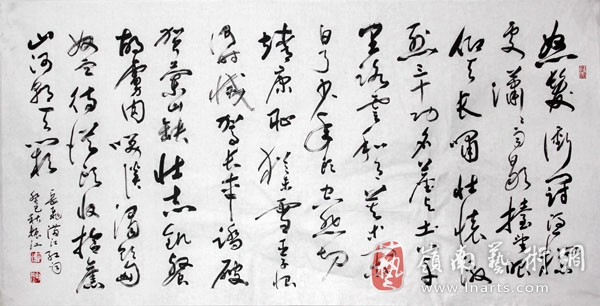 怒髮衝冠憑欄
處瀟瀟雨歇擡望眼
仰天長嘯壯懷激
烈三十功名塵與土八千
里路雲和月莫等閒
白了少年頭空悲切
靖康恥猶未雪臣子恨
何時滅駕長車踏破
賀蘭山缺壯志飢餐
胡虜肉笑談渴飲匈
奴血待從頭收拾舊
山河朝天闕
岳飛滿江紅詞
癸巳秋
藝
嶺南藝術網
www.lnarts.com